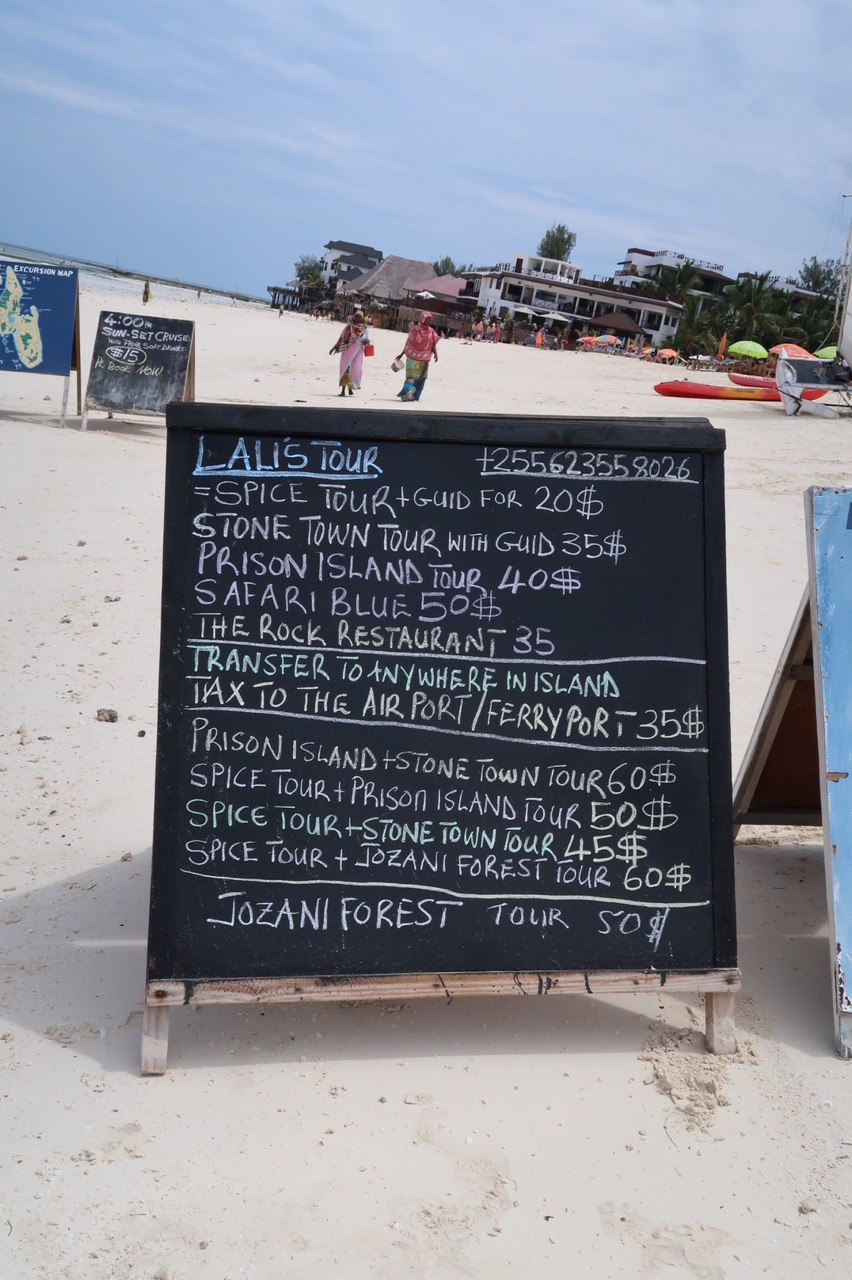 EXCURSION MAP
4:00PM
SUNSET CRUISE
WITH FREE SOFT DRINKS
$15
PL BOOK NOW
LALI'S TOUR +255623558026
=SPICE TOUR+GUID FOR 20$
STONE TOWN TOUR WITH GUID 35$
PRISON ISLAND TOUR 40$
SAFARI BLUE 50$
THE ROCK RESTAURANT 35
TRANSFER TO ANYWHERE IN ISLAND
TAX TO THE AIRPORT/FERRYPORT 35$
PRISON ISLAND+STONE TOWN TOUR 60$
SPICE TOUR+PRISON ISLAND TOUR 50$
SPICE TOUR+STONE TOWN TOUR 45$
SPICE TOUR + JOZANI FOREST TOUR 60$
JOZANI FOREST TOUR 50$